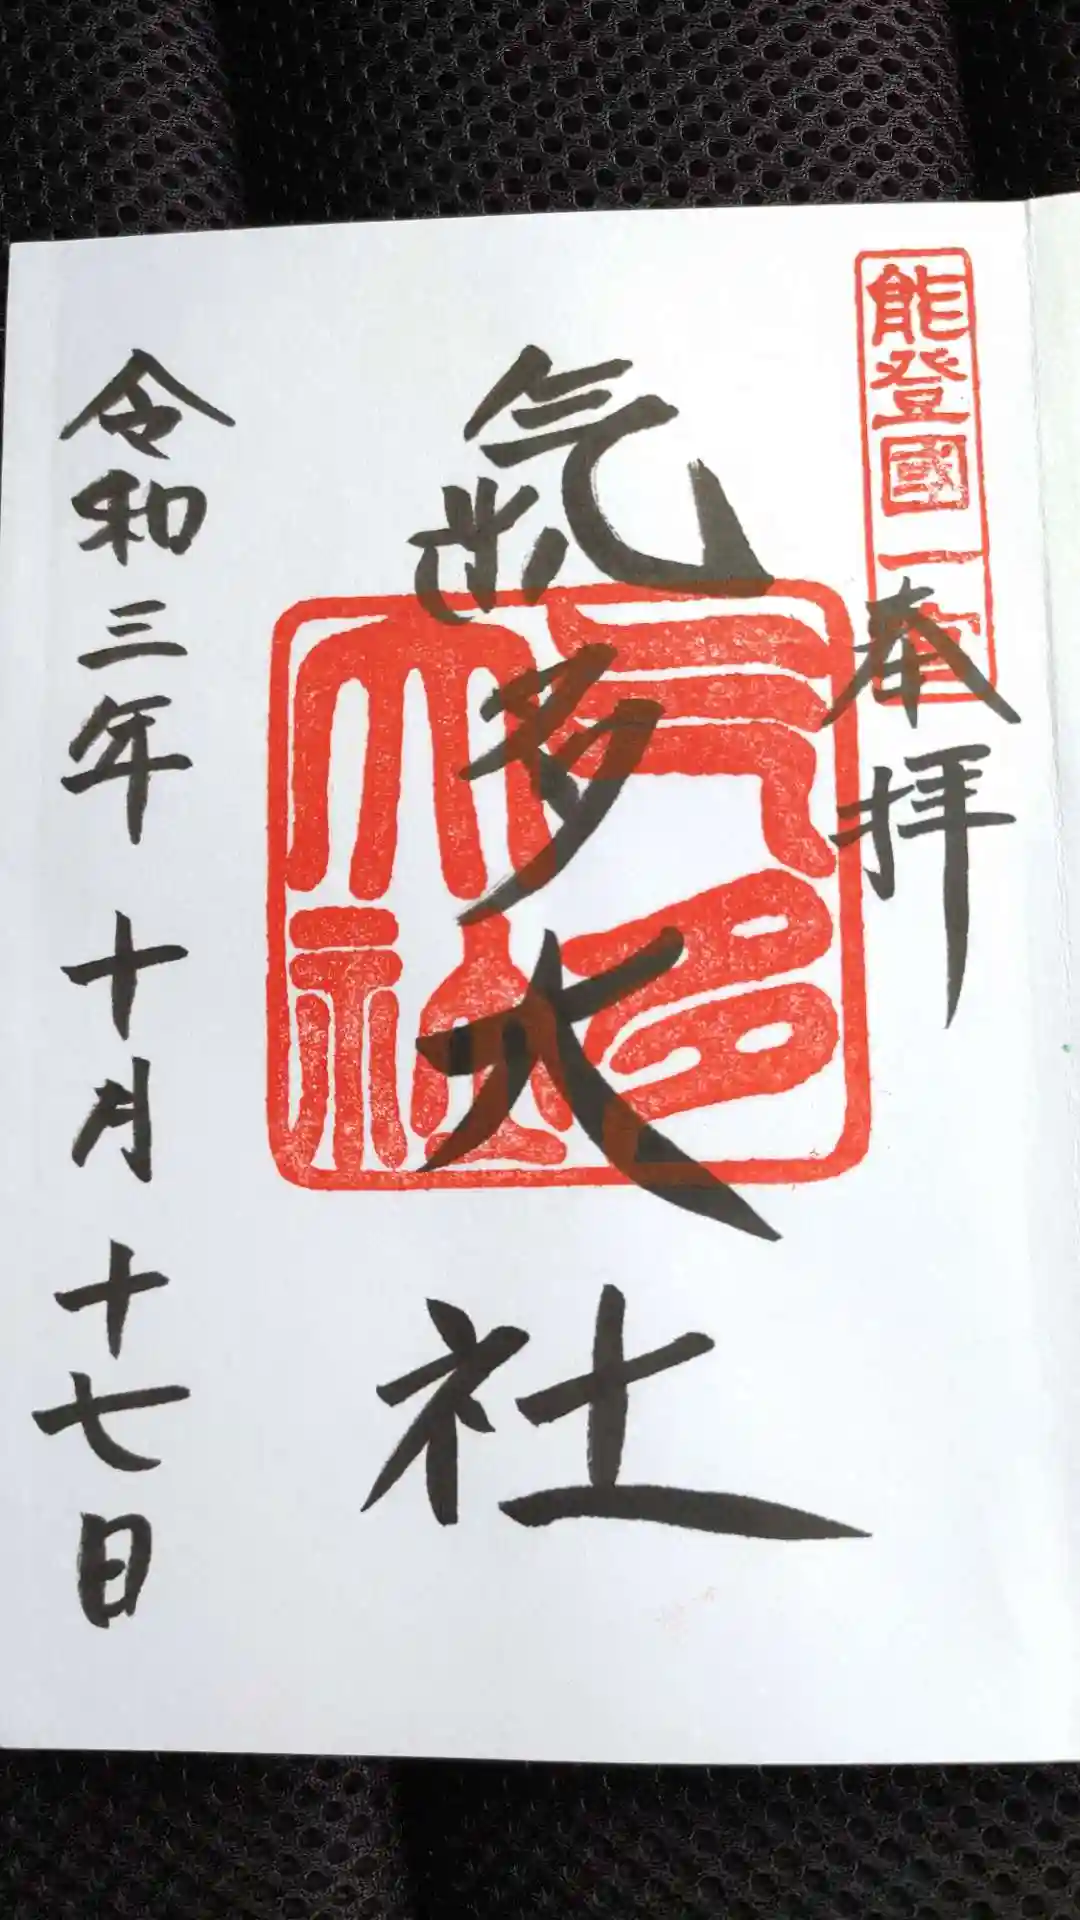 能登國一宮
奉拝
氣多大社
气多
大社
令和三年十月十七日